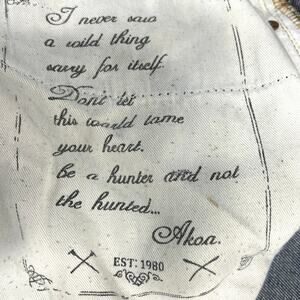 I never saw
a wild thing
sorry for itself.
Don't let
this world tame
your heart.
Be a hunter and not
the hunted...
Akoa.
EST: 1980